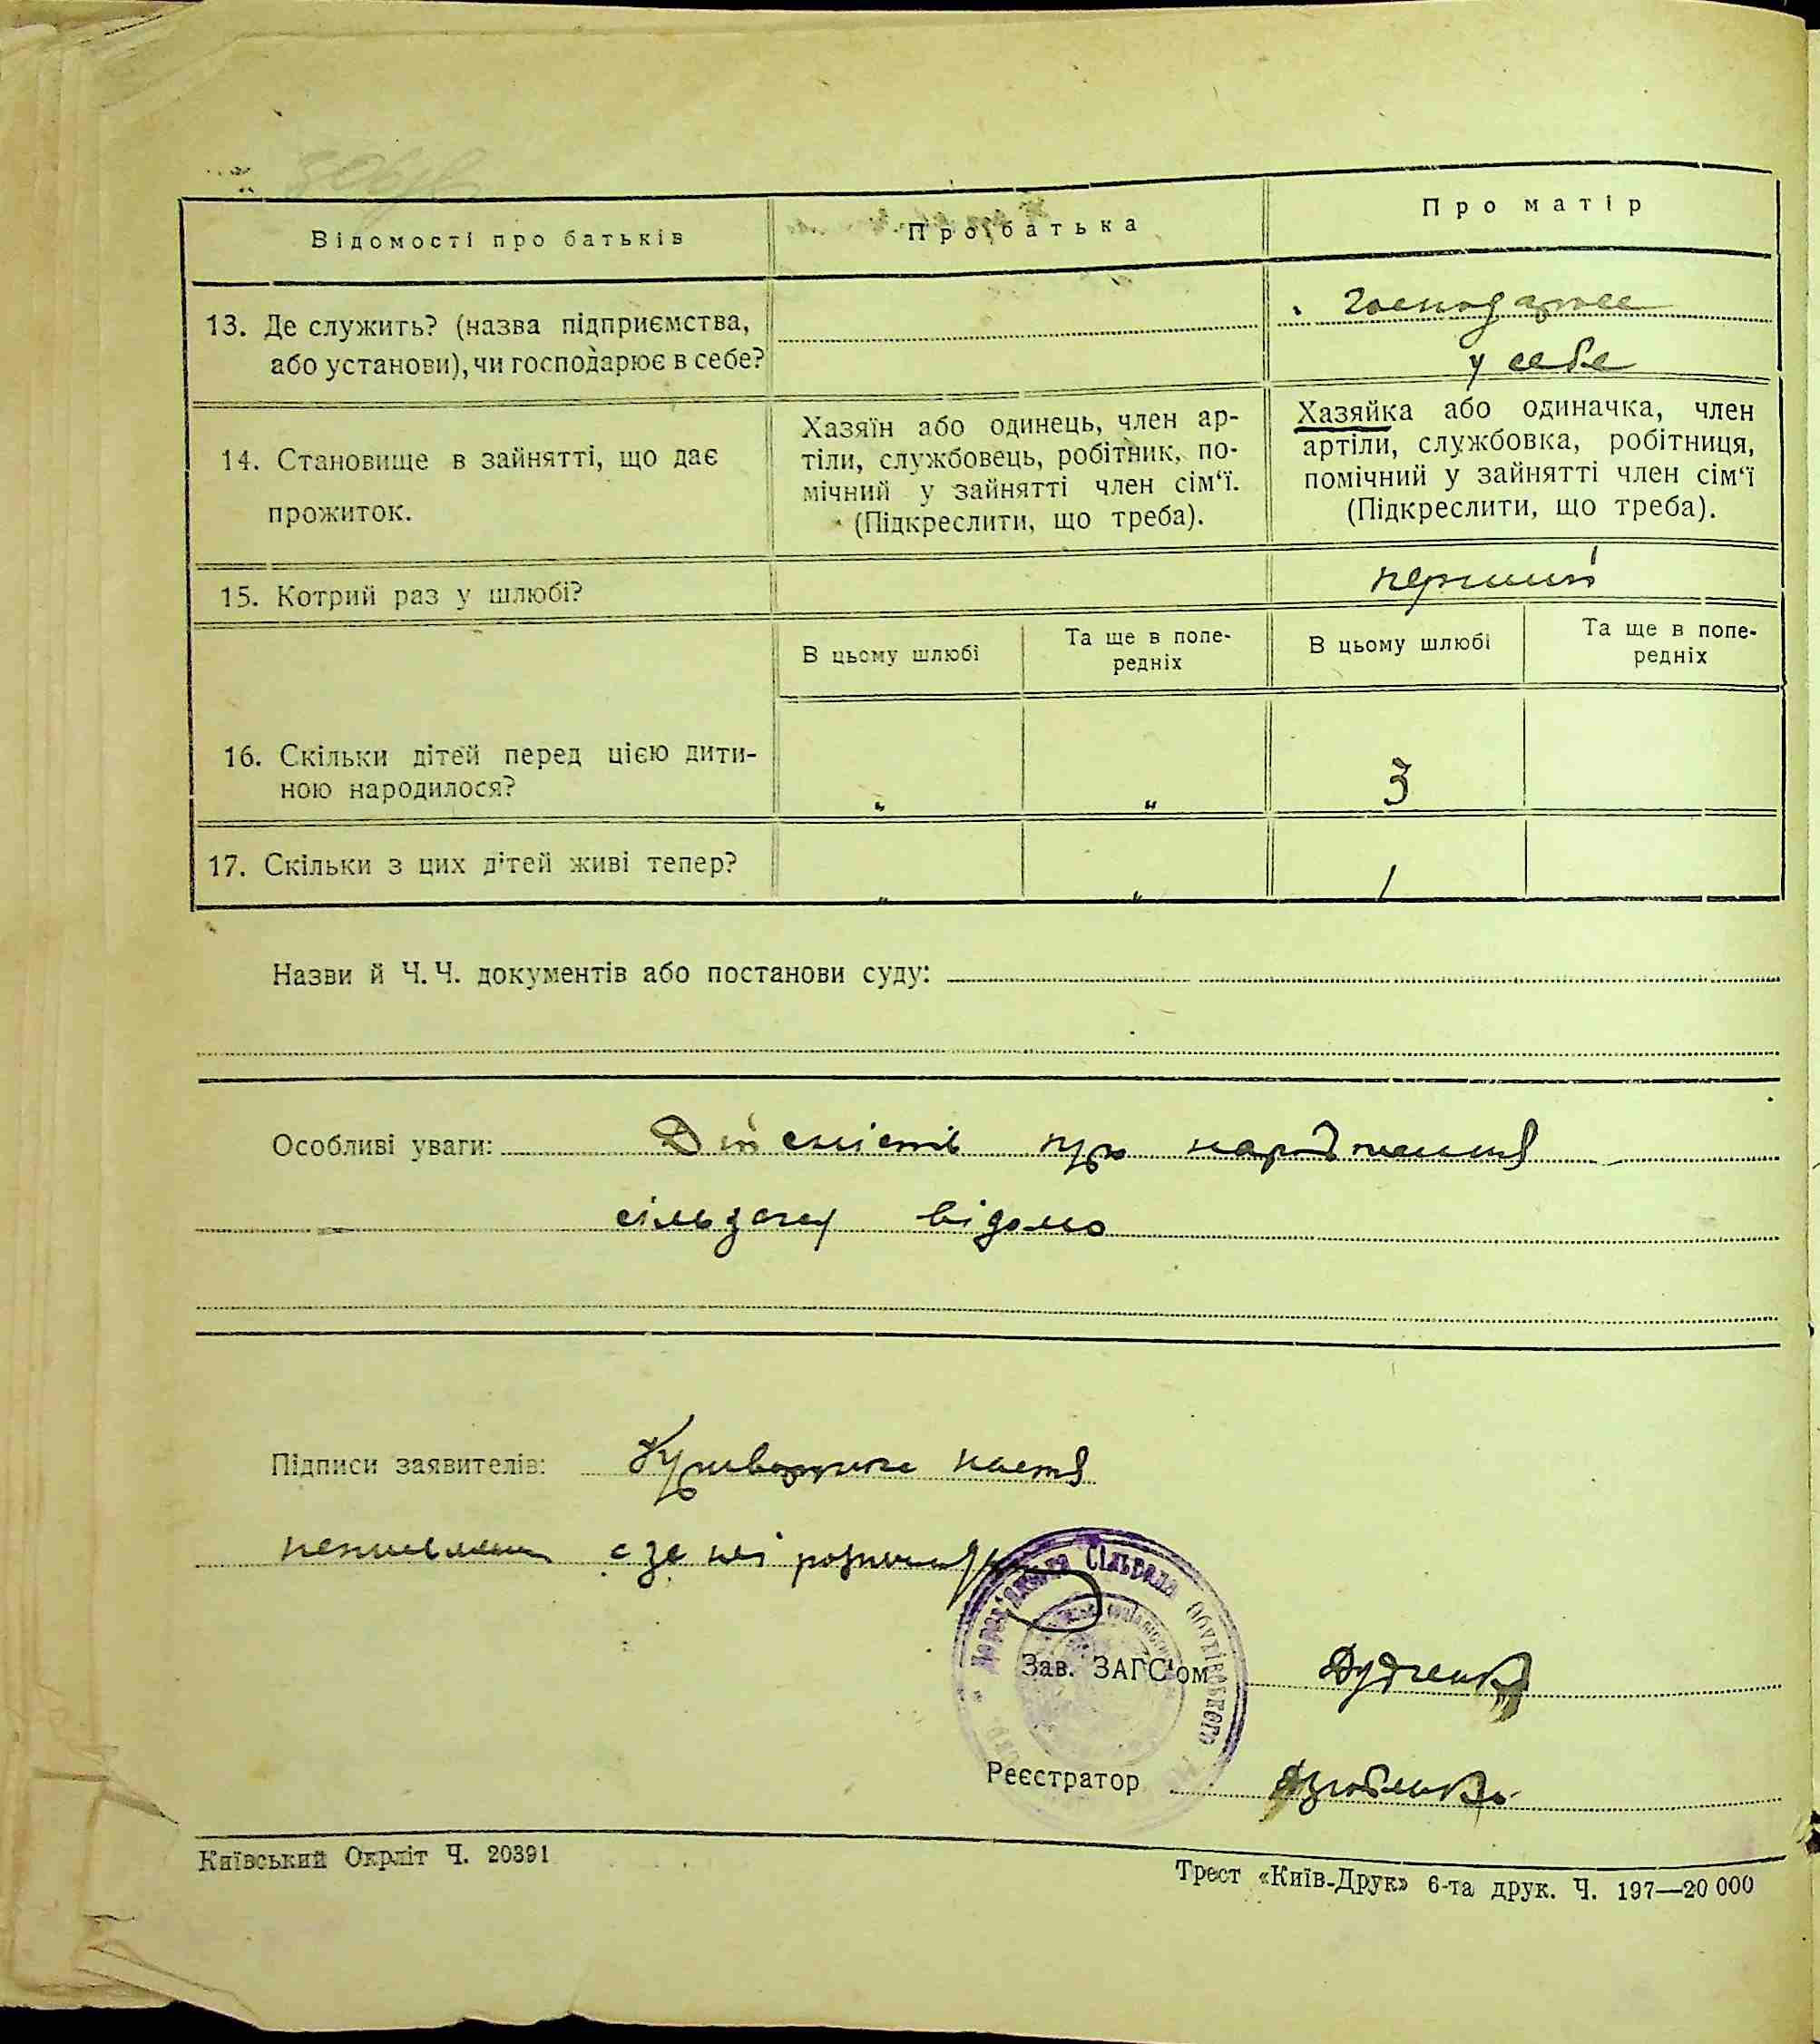 Відомості про батьків
Про батька
Про матір
13. Де служить? (назва підприємства,
або установи), чи господарює в себе?
господарює
у себе
14. Становище в зайнятті, що дає
прожиток.
Хазяїн або одинець, член ар-
тіли, службовець, робітник, по-
мічний у зайнятті член сім‘ї.
(Підкреслити, що треба).
Хазяйка або одиначка, член
артіли, службовка, робітниця,
помічний у зайнятті член сім‘ї
(Підкреслити, що треба).
15. Котрий раз у шлюбі?
перший
В цьому шлюбі
Та ще в попе-
редніх
В цьому шлюбі
Та ще в попе-
редніх
16. Скільки дітей перед цією дити-
ною народилося?
„
„
3
17. Скільки з цих дітей живі тепер?
„
„
1
Назви й Ч. Ч. документів або постанови суду:
Особливі уваги: про народження
сільраді відомо
Підписи заявителів:
неписьмен а за неї
Сільрада Обухівського
Зав. ЗАГС‘ом Дудченко
Реєстратор
Київський Окрліт Ч. 20391
Трест «Київ-Друк» 6-та друк. Ч. 197—20 000